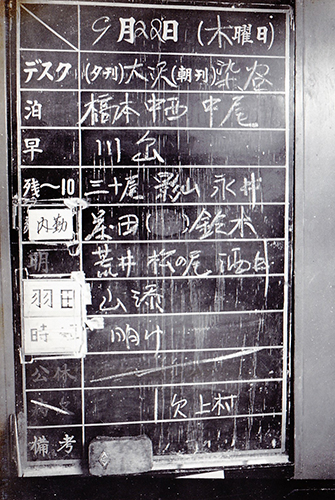 9月28日(木曜日)
デスク (夕刊)大沢(朝刊)染谷
泊 橋本 中西 中尾
早 川島
残〜10 三十尾 影山 永井
内勤 柴田 鈴木
明 荒井 松の尾
羽田 山添
時 明け
公休
1欠 上村
備考